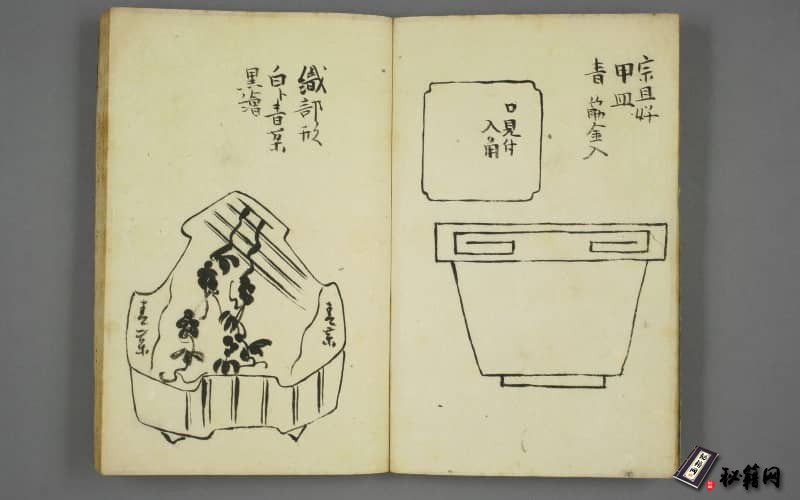 宗旦好
甲皿
青 金入
口見付
入角
織部形
白ト青薬
黒繪
青薬
青薬
秘籍网